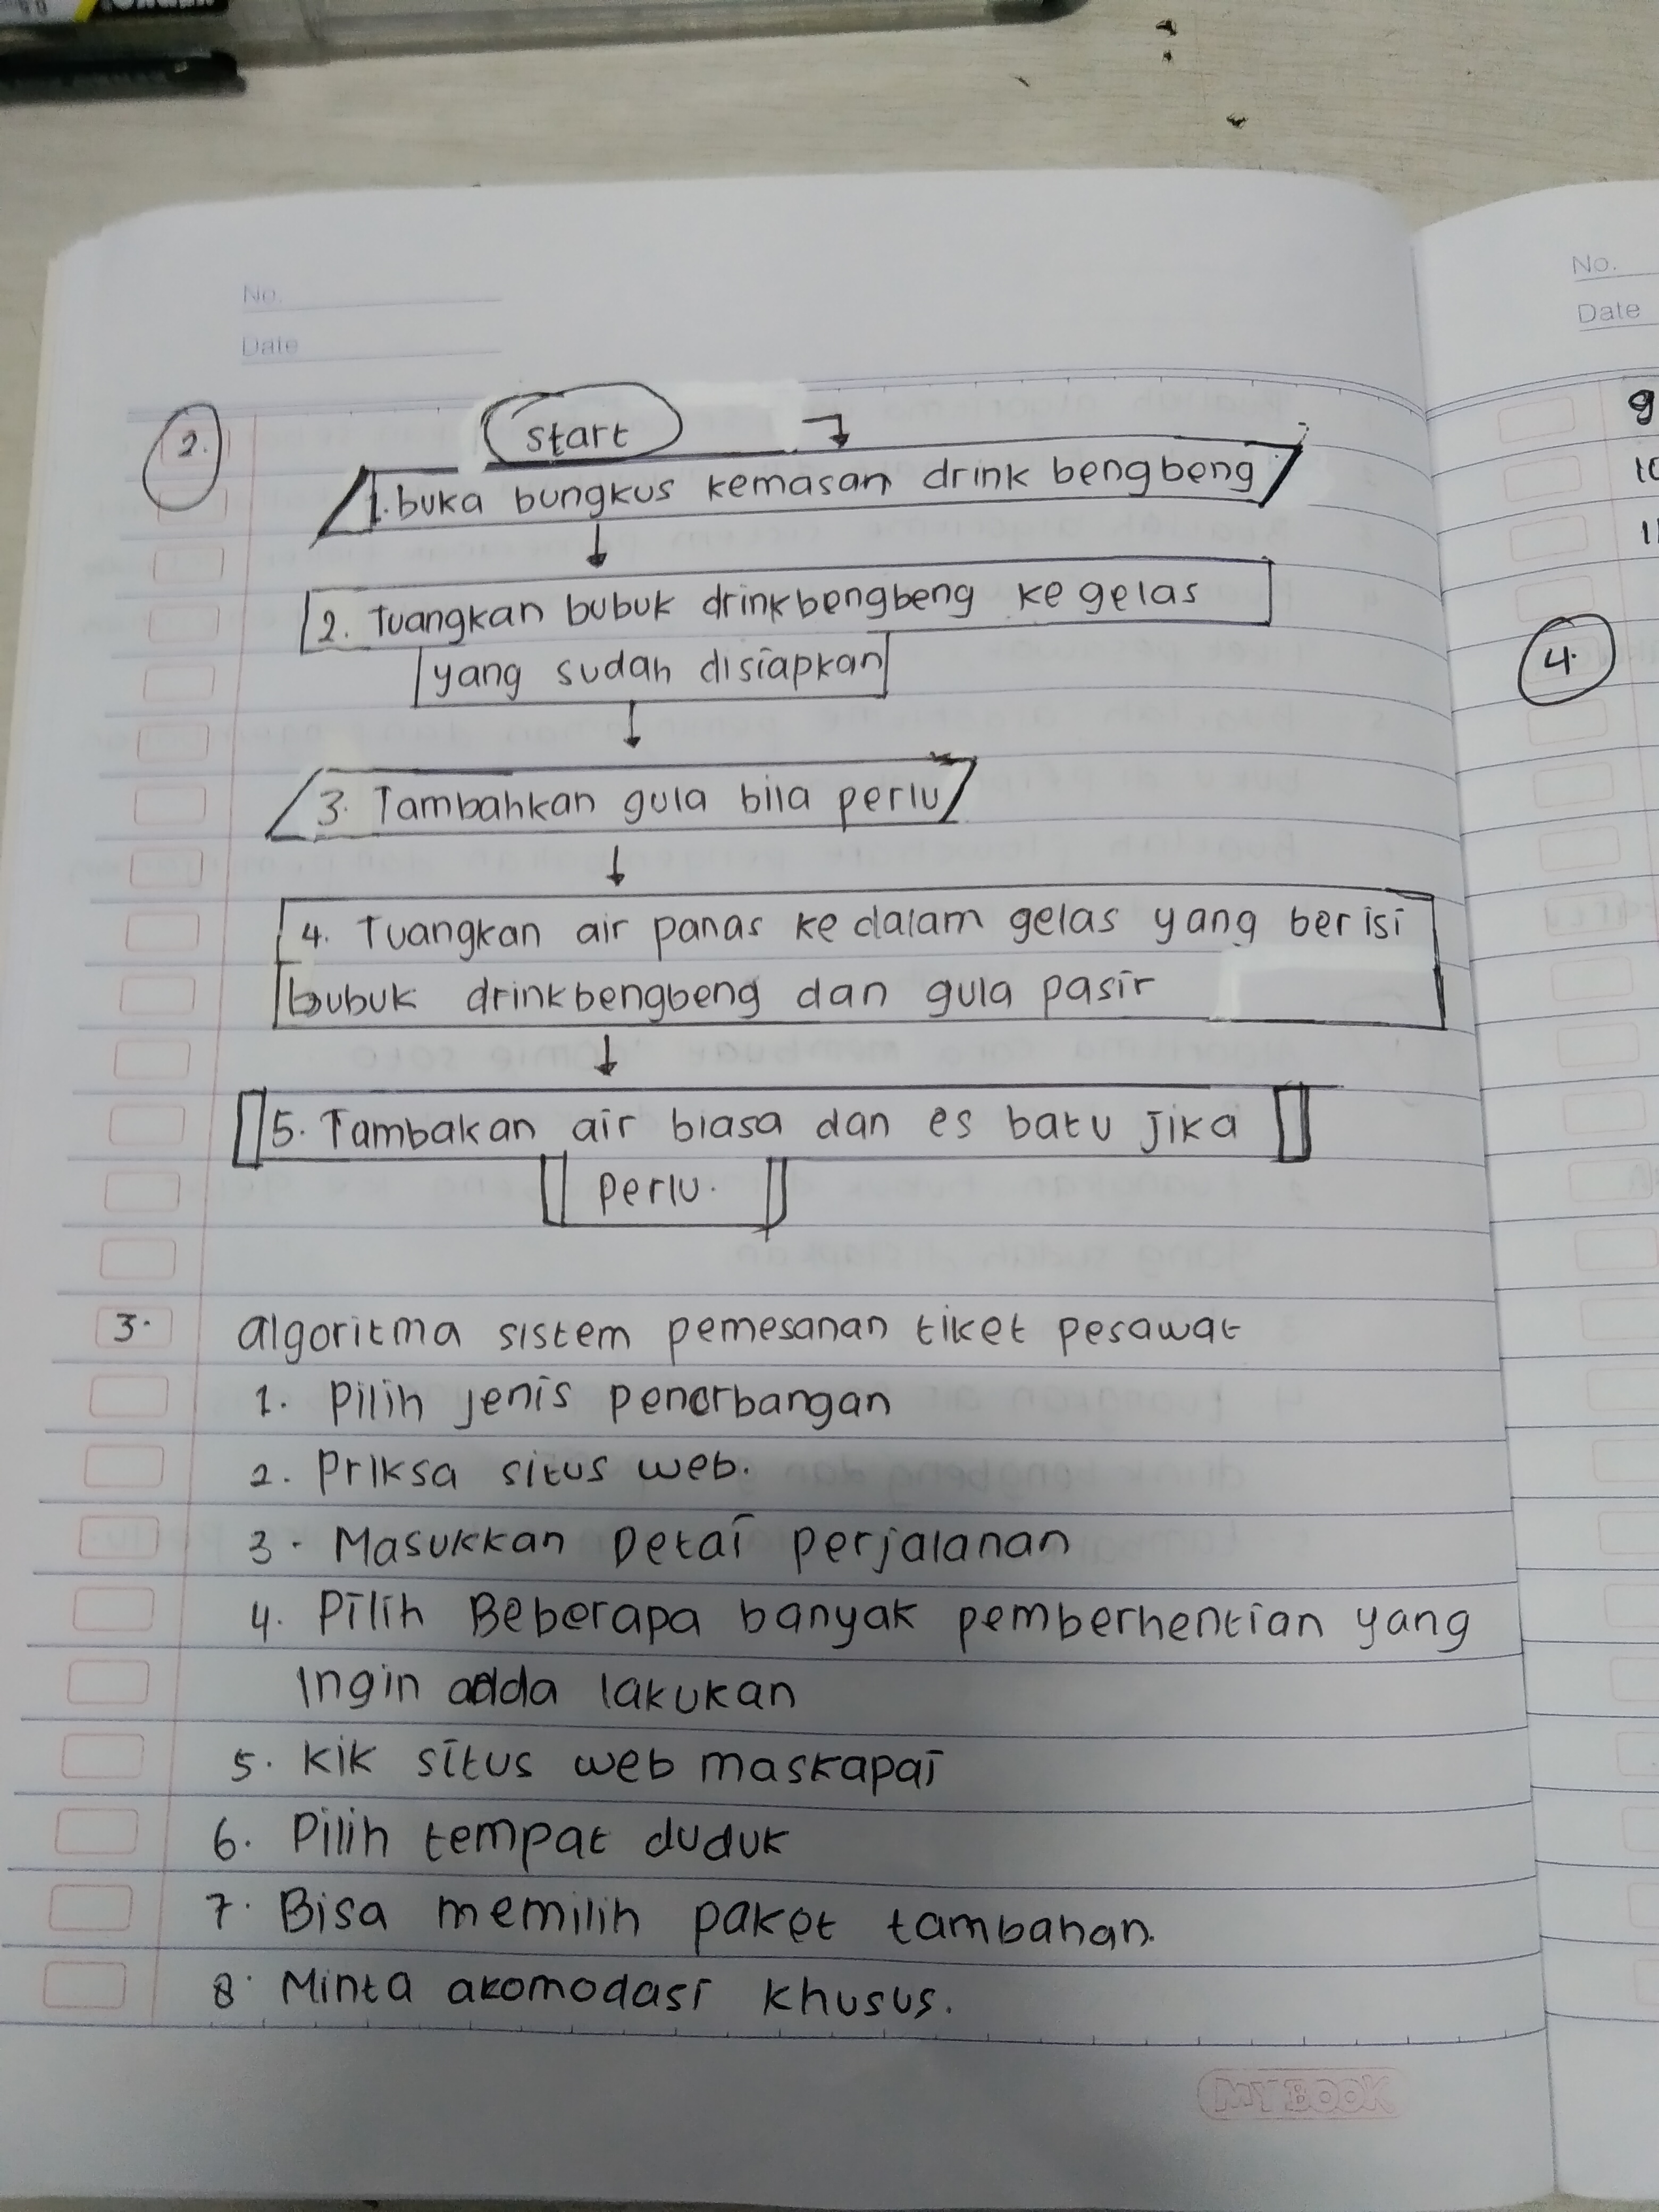 No.
Date
2.
start
1. buka bungkus kemasan drink bengbeng
2. Tuangkan bubuk drinkbengbeng ke gelas
yang sudah disiapkan
3. Tambahkan gula bila perlu
4. Tuangkan air panas kedalam gelas yang berisi
bubuk drinkbengbeng dan gula pasir
5. Tambakan air biasa dan es batu jika
perlu.
3. algoritma sistem pemesanan tiket pesawat
1. Pilih jenis penerbangan
2. Priksa situs web.
3. Masukkan Detai perjalanan
4. Pilih Beberapa banyak pemberhentian yang
Ingin adda lakukan
5. Kik situs web maskapai
6. Pilih tempat duduk
7. Bisa memilih paket tambahan.
8. Minta akomodasi khusus.
MY BOOK
No.
Date
9
10
11
4.